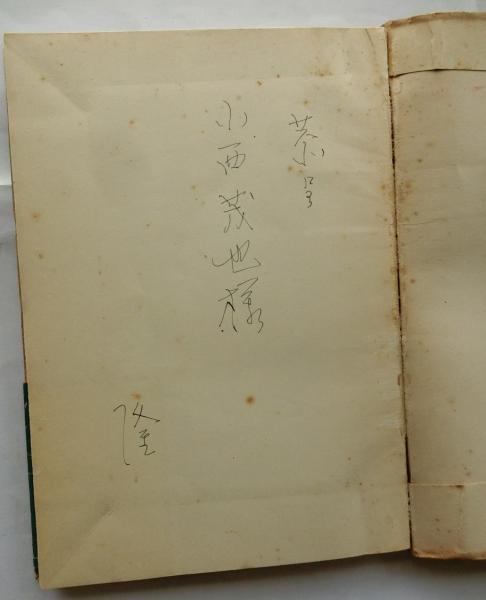 恭呈
小西茂也様
隆